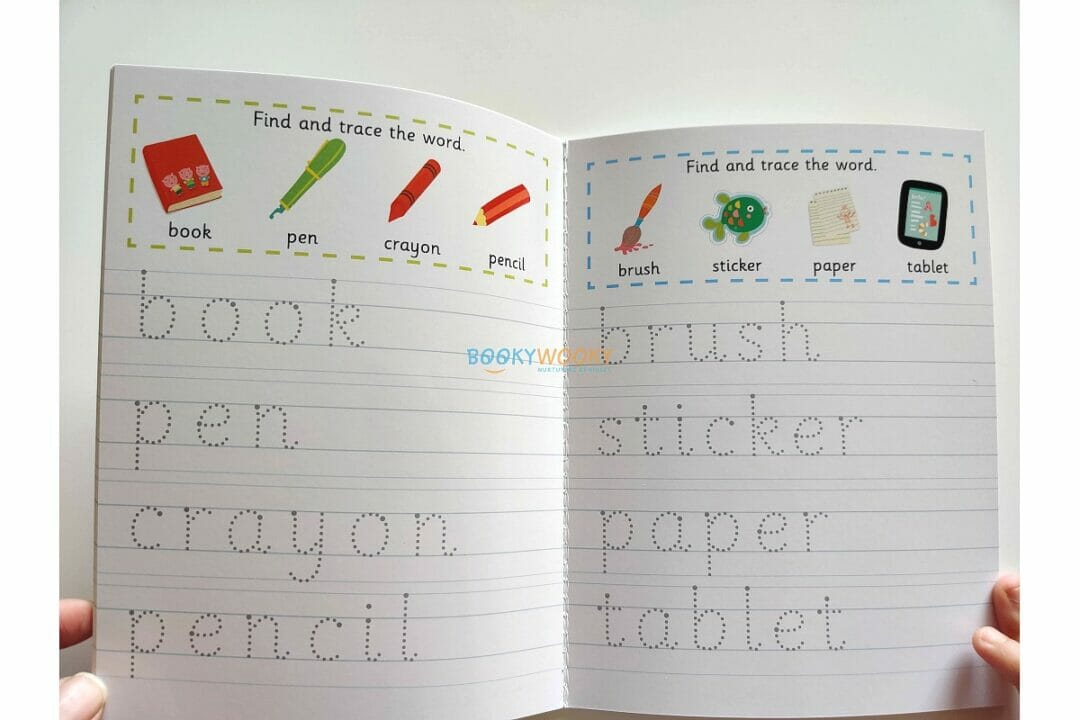 Find and trace the word.
book
pen
crayon
pencil
book
pen
crayon
pencil
Find and trace the word.
brush
sticker
paper
tablet
brush
sticker
paper
tablet
BOOKYWOOKY